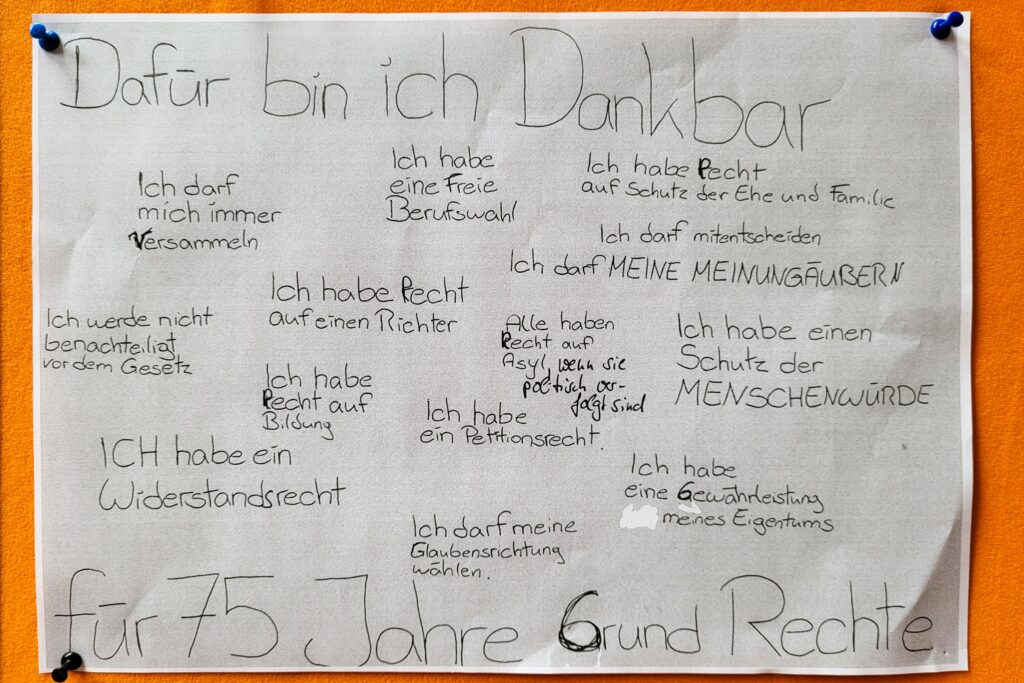 Dafür bin ich Dankbar
Ich darf
mich immer
Versammeln
Ich habe
eine Freie
Berufswahl
Ich habe Recht
auf Schutz der Ehe und Familie
Ich darf mitentscheiden
Ich darf MEINE MEINUNGÄUßERN
Ich habe Recht
auf einen Richter
Ich werde nicht
benachteiligt
vor dem Gesetz
Alle haben
Recht auf
Asyl, wenn sie
politisch ver-
folgt sind
Ich habe einen
Schutz der
MENSCHENWÜRDE
Ich habe
Recht auf
Bildung
Ich habe
ein Petitionsrecht.
ICH habe ein
Widerstandsrecht
Ich habe
eine Gewährleistung
meines Eigentums
Ich darf meine
Glaubensrichtung
wählen.
für 75 Jahre Grund Rechte